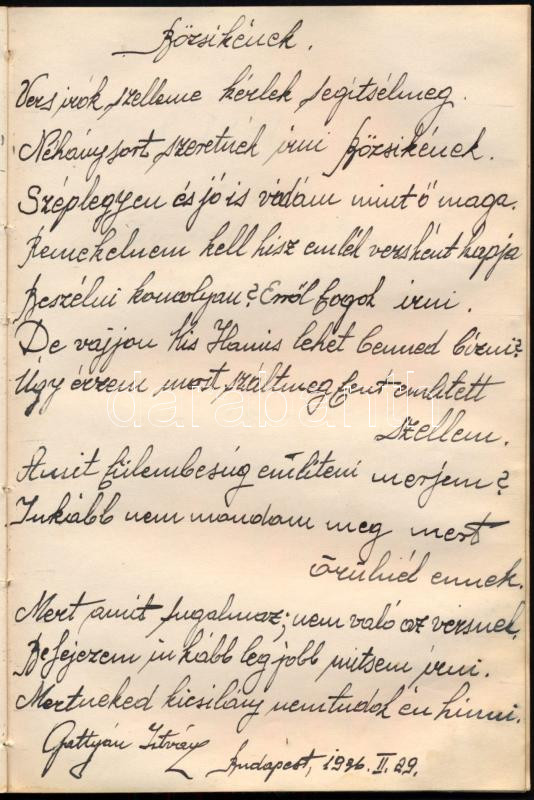 Bözsikének.
Vers irók szelleme kérlek segítsélmeg.
Néhánysort szeretnék irni Bözsikének.
Széplegyen és jó is vidám mint ő maga.
Remekelnem kell hisz emlék versként kapja
Beszélni komolyan? Erről fogok irni.
De vajjon kis Hamis lehet benned bizni?
Úgy érzem most száltmeg fent említett
szellem.
Amit fülembesúg említeni merjem?
Inkább nem mondom meg mert
örülnél ennek.
Mert amit sugalmaz; nem való az versnek.
Befejezem inkább legjobb mitsem irni.
Mertneked kicsilány nemtudok én hinni.
Gattyán István
Budapest, 1936. II. 29.
darabanth